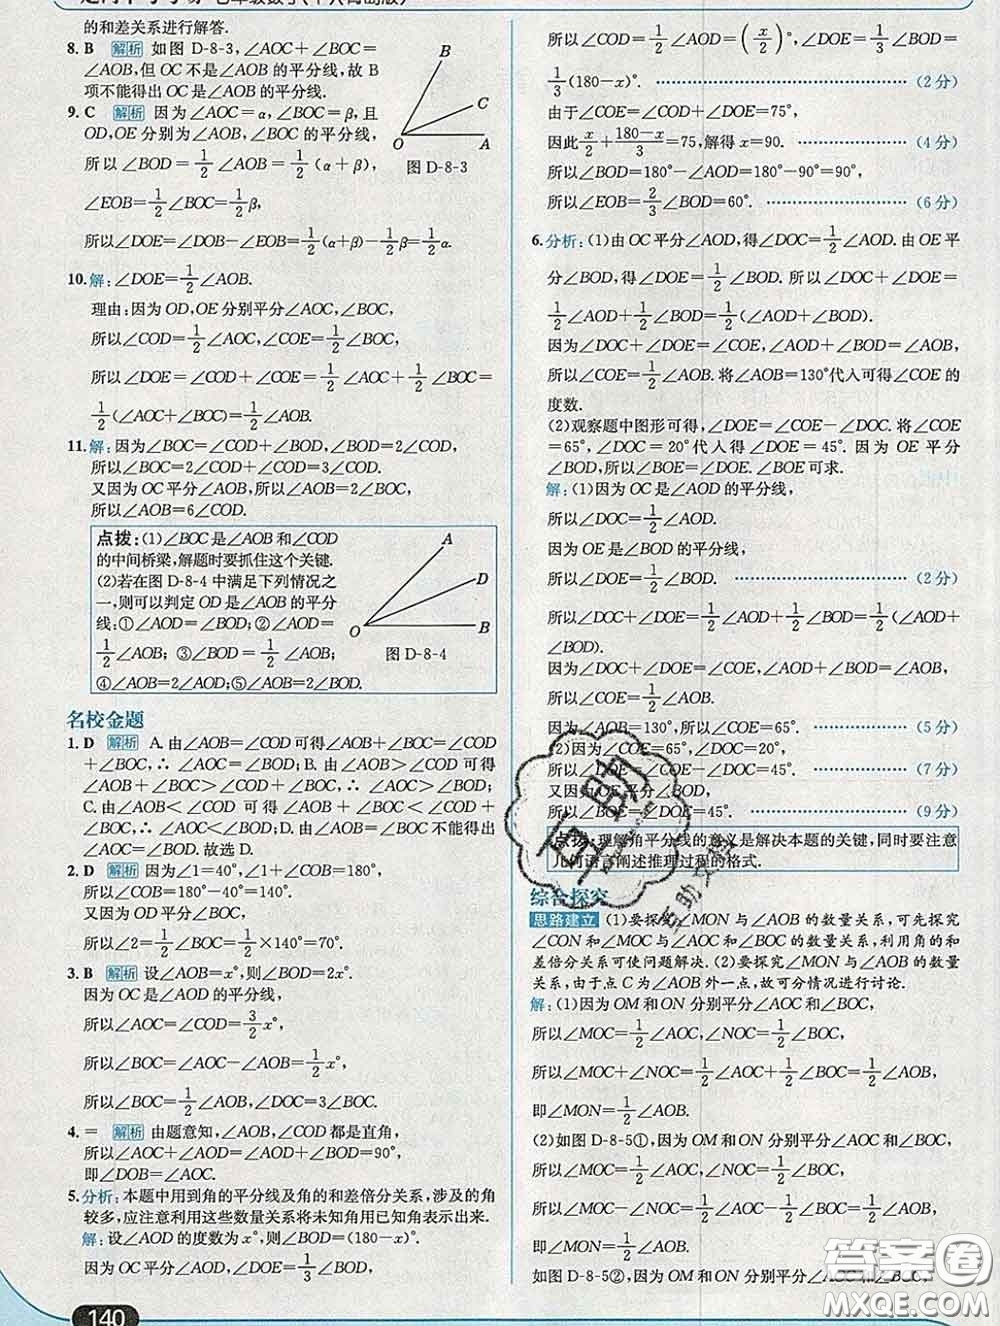 的和差关系进行解答.
8. B 解析 如图 D-8-3,∠AOC+∠BOC=
∠AOB,但 OC 不是∠AOB 的平分线,故 B
项不能得出 OC 是∠AOB 的平分线.
9. C 解析 因为∠AOC=α,∠BOC=β,且
OD,OE 分别为∠AOB,∠BOC 的平分线,
所以∠BOD=1/2∠AOB=1/2(α+β),
∠EOB=1/2∠BOC=1/2β,
所以∠DOE=∠DOB-∠EOB=1/2(α+β)-1/2β=1/2α.
B
C
O
A
图 D-8-3
10. 解:∠DOE=1/2∠AOB.
理由:因为 OD,OE 分别平分∠AOC,∠BOC,
所以∠COD=1/2∠AOC,∠COE=1/2∠BOC,
所以∠DOE=∠COD+∠COE=1/2∠AOC+1/2∠BOC=
1/2(∠AOC+∠BOC)=1/2∠AOB.
11. 解:因为∠BOC=∠COD+∠BOD,∠BOD=2∠COD,
所以∠BOC=2∠COD+∠COD=3∠COD.
又因为 OC 平分∠AOB,所以∠AOB=2∠BOC,
所以∠AOB=6∠COD.
点拨:(1)∠BOC 是∠AOB 和∠COD
的中间桥梁,解题时要抓住这个关键.
(2)若在图 D-8-4 中满足下列情况之
一,则可以判定 OD 是∠AOB 的平分
线:①∠AOD=∠BOD;②∠AOD=
1/2∠AOB;③∠BOD=1/2∠AOB;
④∠AOB=2∠AOD;⑤∠AOB=2∠BOD.
A
D
O
B
图 D-8-4
名校金题
1. D 解析 A. 由∠AOB=∠COD 可得∠AOB+∠BOC=∠COD
+∠BOC,∴ ∠AOC=∠BOD;B. 由∠AOB>∠COD 可得
∠AOB+∠BOC>∠COD+∠BOC,∴ ∠AOC>∠BOD;
C. 由∠AOB<∠COD 可得∠AOB+∠BOC<∠COD+
∠BOC,∴ ∠AOC<∠BOD;D. 由∠AOB=∠BOC 不能得出
∠AOC=∠BOD. 故选 D.
2. D 解析 因为∠1=40°,∠1+∠COB=180°,
所以∠COB=180°-40°=140°.
又因为 OD 平分∠BOC,
所以∠2=1/2∠BOC=1/2×140°=70°.
3. B 解析 设∠AOB=x°,则∠BOD=2x°.
因为 OC 是∠AOD 的平分线,
所以∠AOC=∠COD=3/2x°,
所以∠BOC=∠AOC-∠AOB=1/2x°,
所以∠BOC=1/2∠AOB,∠DOC=3∠BOC.
4. = 解析 由题意知,∠AOB,∠COD 都是直角,
所以∠AOC+∠AOD=∠AOD+∠BOD=90°,
即∠DOB=∠AOC.
5. 分析:本题中用到角的平分线及角的和差倍分关系,涉及的角
较多,应注意利用这些数量关系将未知角用已知角表示出来.
解:设∠AOD 的度数为 x°,则∠BOD=(180-x)°.
因为 OC 平分∠AOD,∠DOE=1/3∠BOD,
140
所以∠COD=1/2∠AOD=(x/2)°,∠DOE=1/3∠BOD=
1/3(180-x)°. (2 分)
由于∠COE=∠COD+∠DOE=75°,
因此 x/2+(180-x)/3=75,解得 x=90. (4 分)
所以∠BOD=180°-∠AOD=180°-90°=90°,
所以∠EOB=2/3∠BOD=60°. (6 分)
6. 分析:(1)由 OC 平分∠AOD,得∠DOC=1/2∠AOD. 由 OE 平
分∠BOD,得∠DOE=1/2∠BOD. 所以∠DOC+∠DOE=
1/2∠AOD+1/2∠BOD=1/2(∠AOD+∠BOD).
因为∠DOC+∠DOE=∠COE,∠AOD+∠BOD=∠AOB,
所以∠COE=1/2∠AOB. 将∠AOB=130°代入可得∠COE 的
度数.
(2)观察题中图形可得,∠DOE=∠COE-∠DOC. 将∠COE
=65°,∠DOC=20°代入得∠DOE=45°. 因为 OE 平分
∠BOD,所以∠BOE=∠DOE. ∠BOE 可求.
解:(1)因为 OC 是∠AOD 的平分线,
所以∠DOC=1/2∠AOD.
因为 OE 是∠BOD 的平分线,
所以∠DOE=1/2∠BOD. (2 分)
所以∠DOC+∠DOE=1/2∠AOD+1/2∠BOD=1/2(∠AOD+
∠BOD).
因为∠DOC+∠DOE=∠COE,∠AOD+∠BOD=∠AOB,
所以∠COE=1/2∠AOB.
因为∠AOB=130°,所以∠COE=65°. (5 分)
(2)因为∠COE=65°,∠DOC=20°,
所以∠DOE=∠COE-∠DOC=45°. (7 分)
又因为 OE 平分∠BOD,
所以∠BOE=∠DOE=45°. (9 分)
点拨:理解角平分线的意义是解决本题的关键,同时要注意
几何语言阐述推理过程的格式.
综合探究
思路建立 (1)要探究∠MON 与∠AOB 的数量关系,可先探究
∠CON 和∠MOC 与∠AOC 和∠BOC 的数量关系,利用角的和
差倍分关系可使问题解决.(2)要探究∠MON 与∠AOB 的数量
关系,由于点 C 为∠AOB 外一点,故可分情况进行讨论.
解:(1)因为 OM 和 ON 分别平分∠AOC 和∠BOC,
所以∠MOC=1/2∠AOC,∠NOC=1/2∠BOC,
所以∠MOC+∠NOC=1/2∠AOC+1/2∠BOC=1/2∠AOB,
即∠MON=1/2∠AOB.
(2)如图 D-8-5①,因为 OM 和 ON 分别平分∠AOC 和∠BOC,
所以∠MOC=1/2∠AOC,∠NOC=1/2∠BOC,
所以∠MOC-∠NOC=1/2∠AOC-1/2∠BOC=1/2∠AOB,
即∠MON=1/2∠AOB.
如图 D-8-5②,因为 OM 和 ON 分别平分∠AOC 和∠BOC,
互助
互助文库
答案圈
MXQE.COM